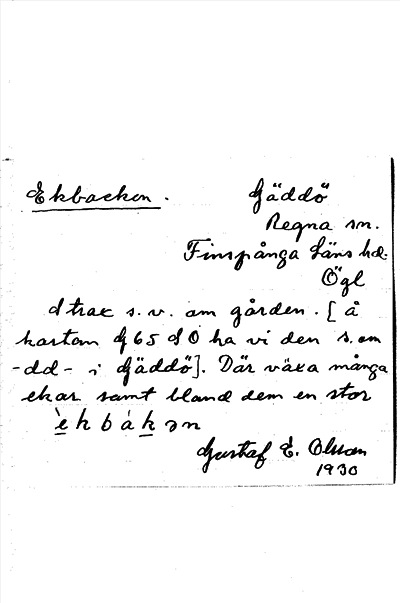 Ekbacken.
Gäddö
Regna sn.
Finspånga läns hd.
Ögl
strax s. v. om gården. [å
kartan G 65 d O ha vi den s. om
-dd- i Gäddö]. Där växa många
ekar samt bland dem en stor
èkbákən
Gustaf E. Olsson
1930